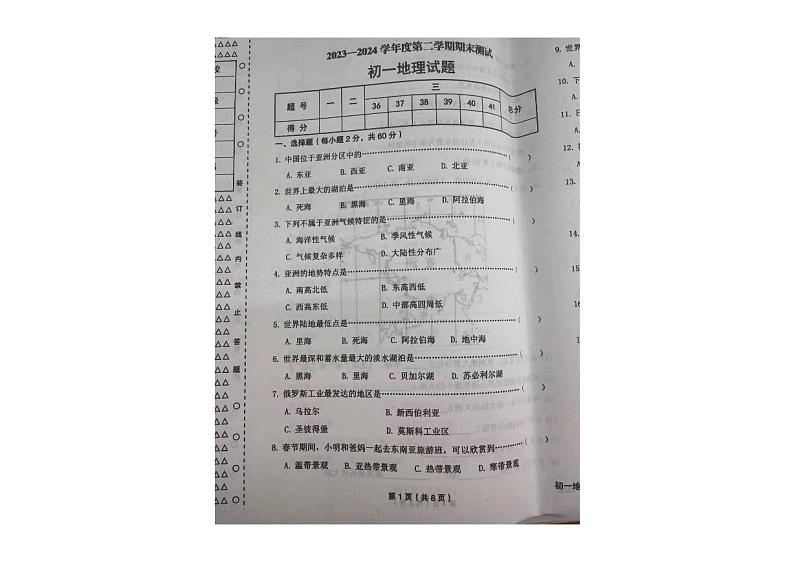 2023—2024 学年度第二学期期末测试
初一地理试题
题 号 一 二 三 总分
36 37 38 39 40 41
得 分
一、选择题（每小题 2 分，共 60 分）
1. 中国位于亚洲分区中的……………………………………（ ）
A. 东亚 B. 西亚 C. 南亚 D. 北亚
2. 世界上最大的湖泊是……………………………………（ ）
A. 死海 B. 黑海 C. 里海 D. 阿拉伯海
3. 下列不属于亚洲气候特征的是……………………………（ ）
A. 海洋性气候 B. 季风性气候
C. 气候复杂多样 D. 大陆性分布广
4. 亚洲的地势特点是………………………………………（ ）
A. 南高北低 B. 东高西低
C. 西高东低 D. 中部高四周低
5. 世界陆地最低点是………………………………………（ ）
A. 里海 B. 死海 C. 阿拉伯海 D. 地中海
6. 世界最深和蓄水量最大的淡水湖泊是……………………（ ）
A. 黑海 B. 里海 C. 贝加尔湖 D. 苏必利尔湖
7. 俄罗斯工业最发达的地区是………………………………（ ）
A. 乌拉尔 B. 新西伯利亚
C. 圣彼得堡 D. 莫斯科工业区
8. 春节期间，小明和爸妈一起去东南亚旅游班，可以欣赏到…………（ ）
A. 温带景观 B. 亚热带景观 C. 热带景观 D. 寒带景观
第 1 页（共 8 页）
装
订
线
内
禁
止
答
题
9. 世界
10. 下
A.
11. 日
A.
12.
13.
14.
15
16
初一地